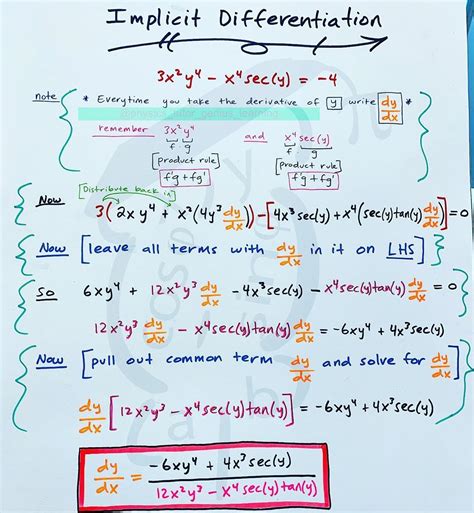 Implicit Differentiation
3x²y⁴ - x⁴sec(y) = -4
note * Everytime you take the derivative of y write dy/dx *
remember 3x²y⁴ and x⁴sec(y)
f g f g
[product rule] [product rule]
f'g + fg' f'g + fg'
[Distribute back in]
Now 3(2xy⁴ + x²(4y³ dy/dx)) - [4x³sec(y) + x⁴(sec(y)tan(y) dy/dx)] = 0
Now [leave all terms with dy/dx in it on LHS]
So 6xy⁴ + 12x²y³ dy/dx - 4x³sec(y) - x⁴sec(y)tan(y) dy/dx = 0
12x²y³ dy/dx - x⁴sec(y)tan(y) dy/dx = -6xy⁴ + 4x³sec(y)
Now [pull out common term dy/dx and solve for dy/dx]
dy/dx [12x²y³ - x⁴sec(y)tan(y)] = -6xy⁴ + 4x³sec(y)
dy/dx = -6xy⁴ + 4x³sec(y) / 12x²y³ - x⁴sec(y)tan(y)